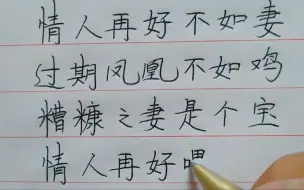 情人再好不如妻
过期凤凰不如鸡
糟糠之妻是个宝
情人再好